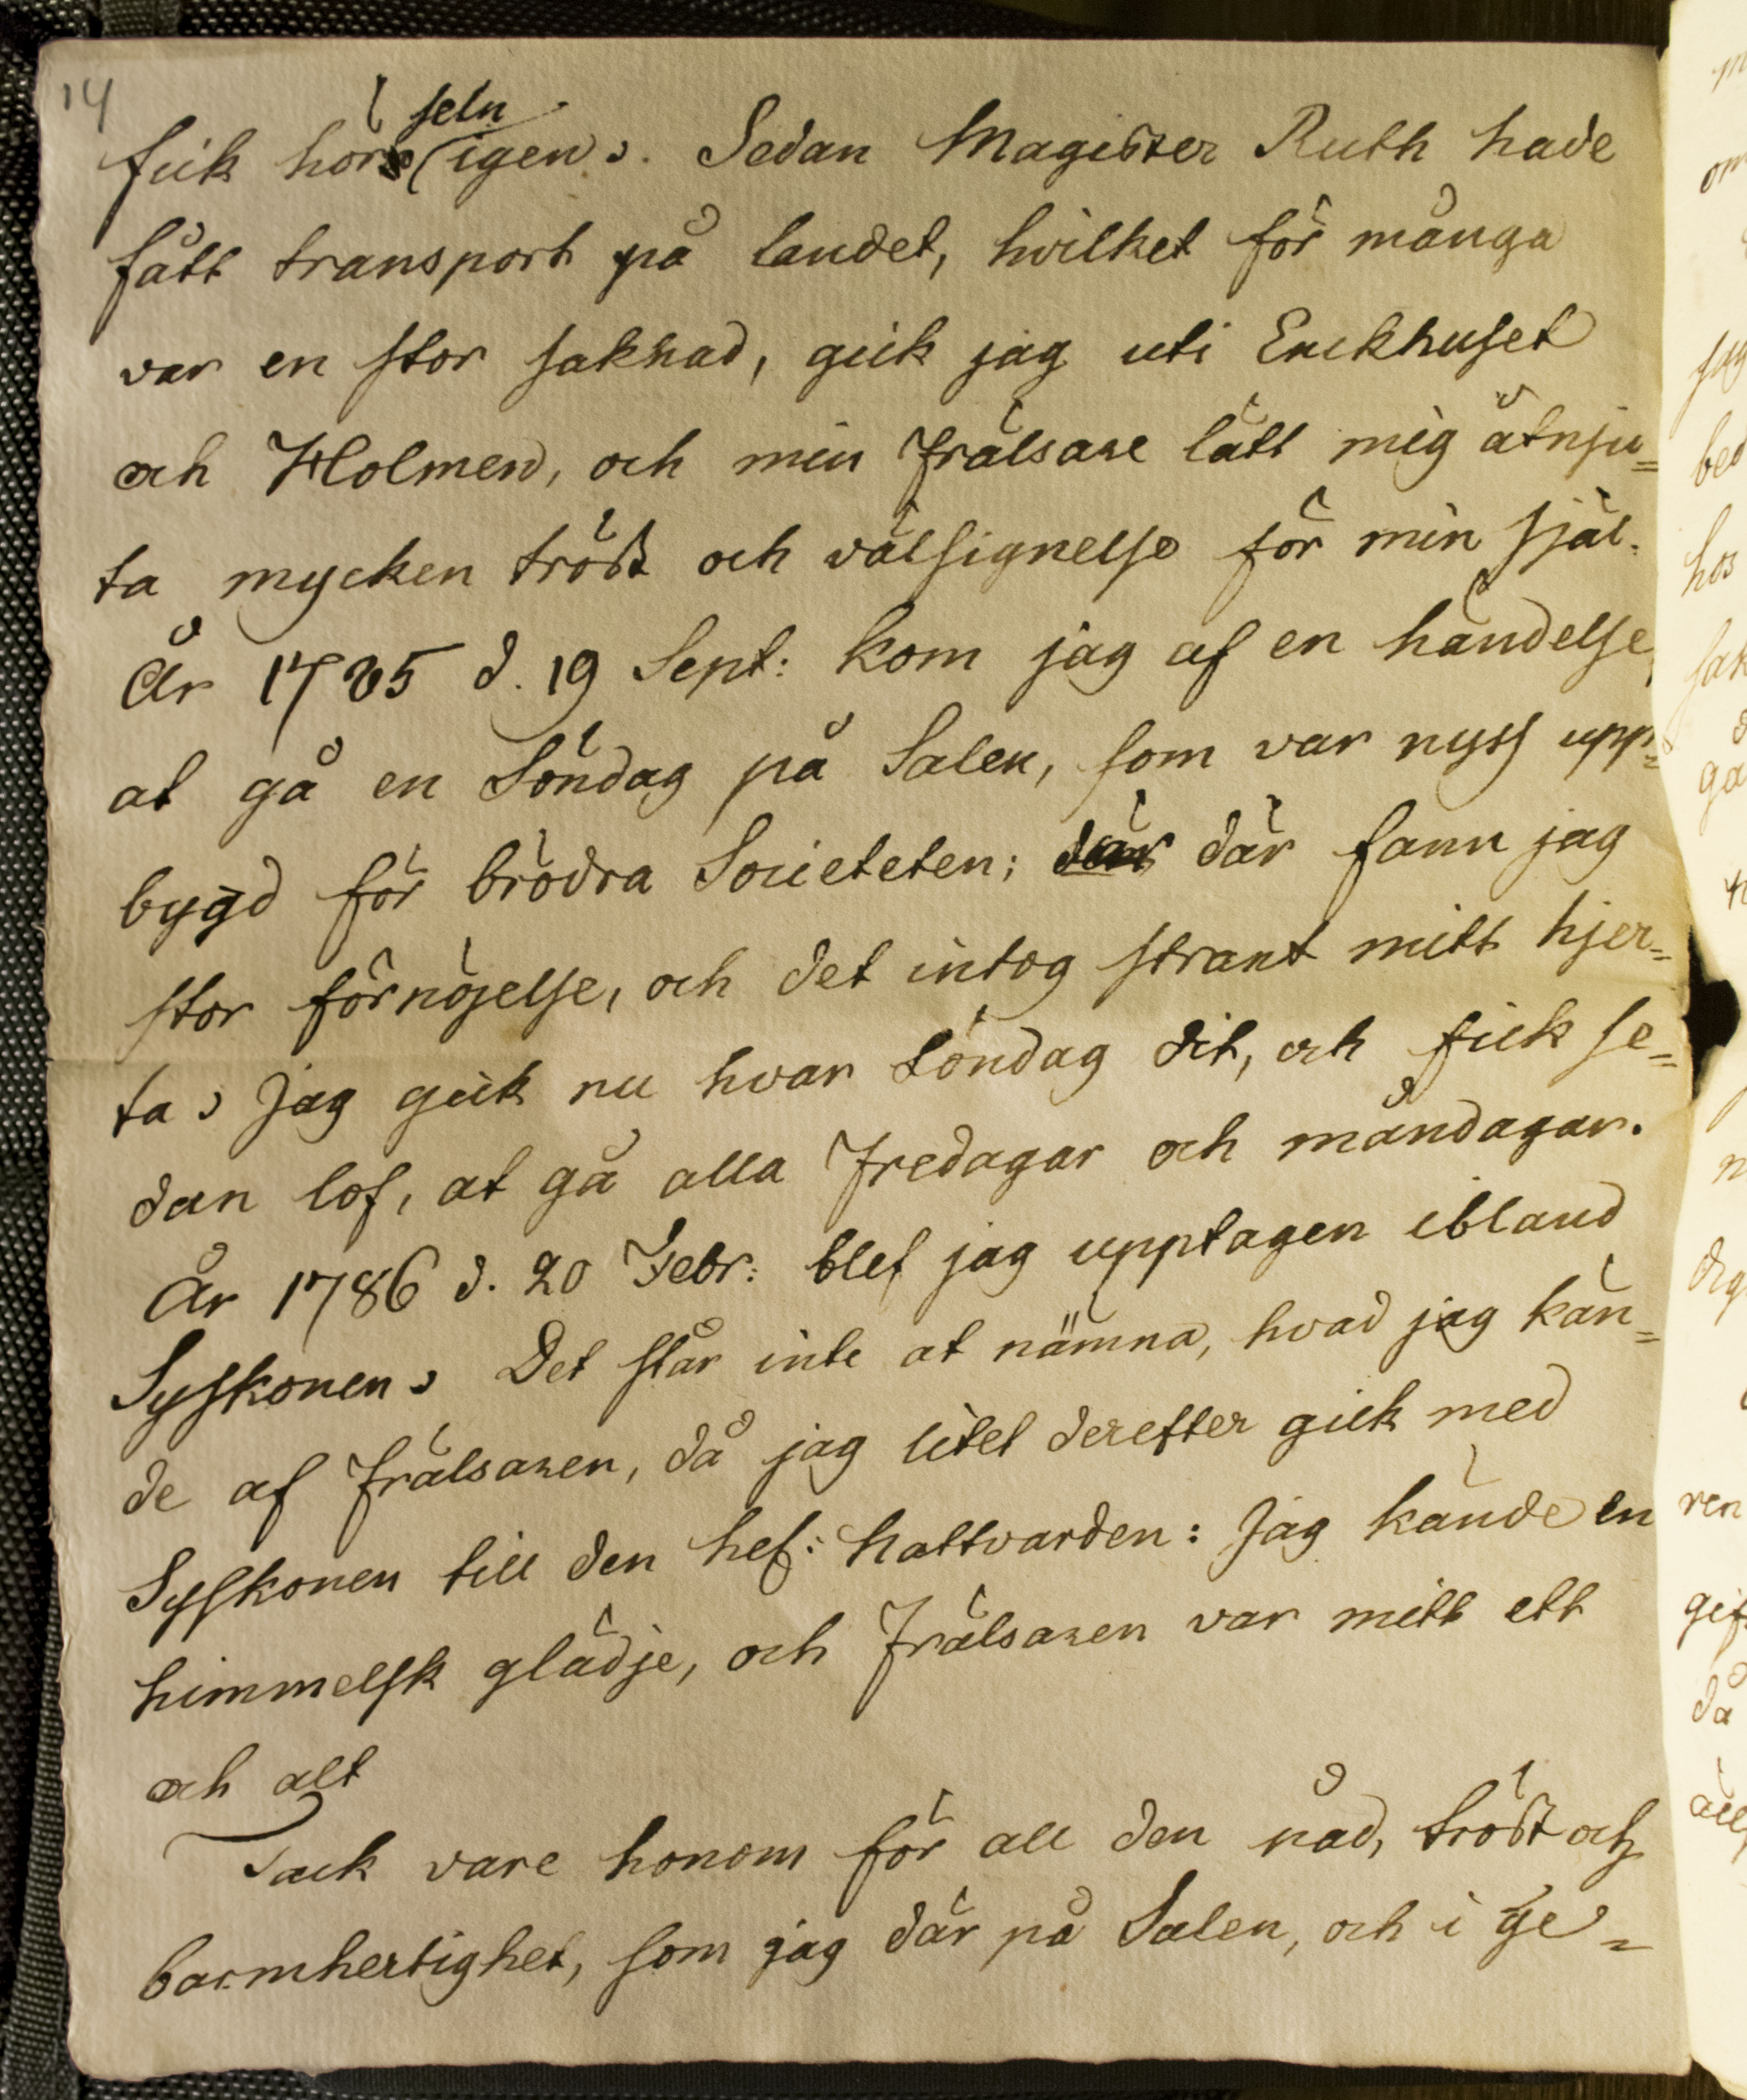 14
fick hörseln igen. Sedan Magister Ruth hade
fått transport på landet, hvilket för många
var en stor saknad, gick jag uti Enckhuset
och Holmen, och min Frälsare lätt mig åtnju=
ta mycken tröst och välsignelse för min själ.
År 1785 d. 19 Sept: kom jag af en händelse,
at gå en Söndag på Salen, som var nyss upp=
bygd för brödra Societeten; där där fann jag
stor förnöjelse, och det intog straxt mitt hjer=
ta. Jag gick nu hvar Söndag dit, och fick se=
dan lof, at gå alla Fredagar och måndagar.
År 1786 d. 20 Febr: blef jag upptagen ibland
Syskonen. Det står inte at nämna, hvad jag kän=
de af Frälsaren, då jag litet derefter gick med
Syskonen till den hel: Nattvarden: Jag kände en
himmelsk glädje, och Frälsaren var mitt ett
och alt
Tack vare honom för all den nåd, tröst och
barmhertighet, som jag där på Salen, och i Ge=